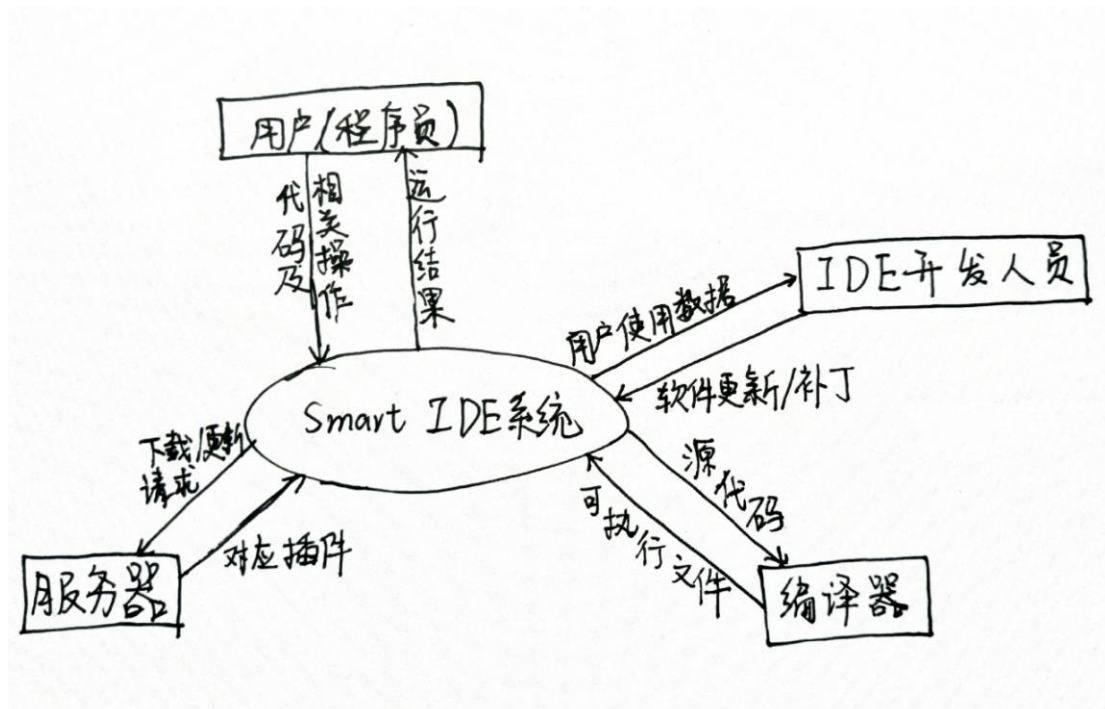 用户(程序员)
代码及
相关操作
运行结果
IDE开发人员
用户使用数据
软件更新/补丁
Smart IDE系统
下载/更新
请求
对应插件
服务器
源代码
可执行文件
编译器